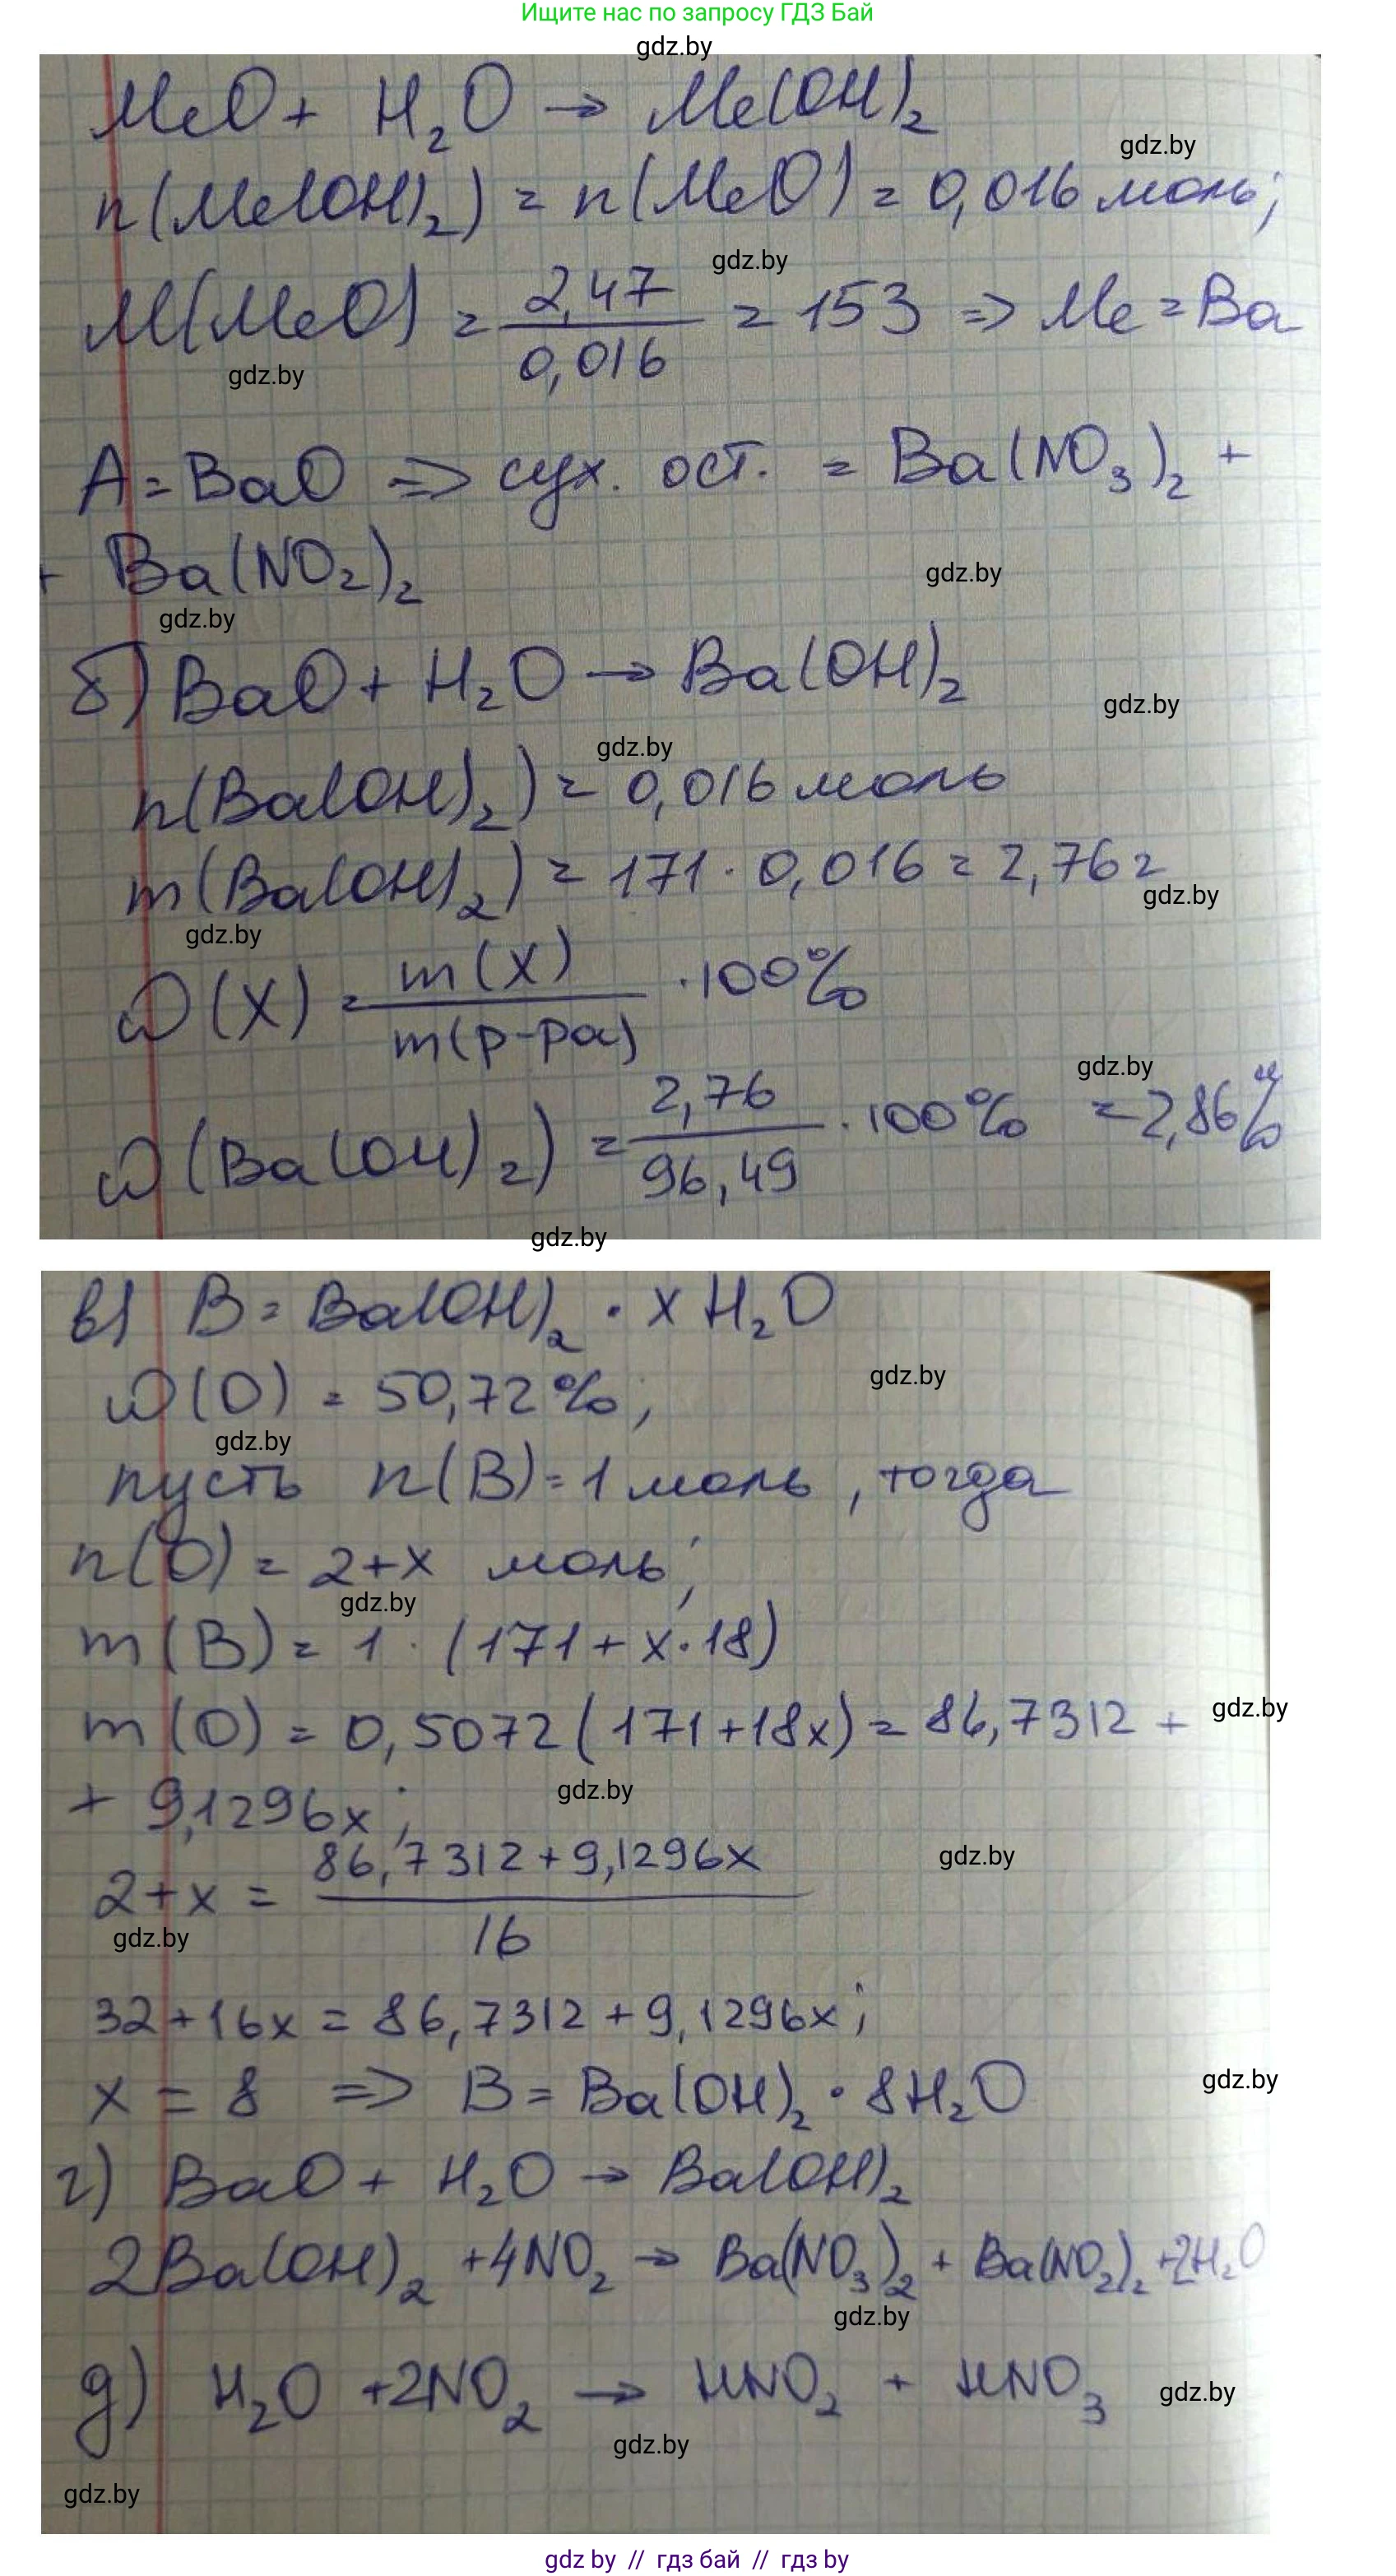 Ищите нас по запросу ГДЗ Бай
gdz.by
MeO + H₂O → Me(OH)₂
gdz.by
n(Me(OH)₂) = n(MeO) = 0,016 моль;
gdz.by
M(MeO) = 2,47 / 0,016 = 153 => Me = Ba
gdz.by
A = BaO => сух. ост. = Ba(NO₃)₂ +
+ Ba(NO₂)₂
gdz.by
gdz.by
б) BaO + H₂O → Ba(OH)₂
gdz.by
gdz.by
n(Ba(OH)₂) = 0,016 моль
m(Ba(OH)₂) = 171 · 0,016 = 2,76 г
gdz.by
gdz.by
ω(X) = m(X) / m(р-ра) · 100%
gdz.by
ω(Ba(OH)₂) = 2,76 / 96,49 · 100% = 2,86%
gdz.by
в) B = Ba(OH)₂ · x H₂O
gdz.by
ω(O) = 50,72%;
gdz.by
пусть n(B) = 1 моль, тогда
n(O) = 2+x моль;
gdz.by
m(B) = 1 · (171 + x·18)
m(O) = 0,5072(171+18x) = 86,7312 +
gdz.by
+ 9,1296x;
gdz.by
2+x = 86,7312+9,1296x / 16
gdz.by
gdz.by
32+16x = 86,7312+9,1296x;
x = 8 => B = Ba(OH)₂ · 8H₂O
gdz.by
г) BaO + H₂O → Ba(OH)₂
2Ba(OH)₂ +4NO₂ → Ba(NO₃)₂ + Ba(NO₂)₂ +2H₂O
gdz.by
д) H₂O +2NO₂ → HNO₂ + HNO₃
gdz.by
gdz.by
gdz.by
gdz by // гдз бай // гдз by